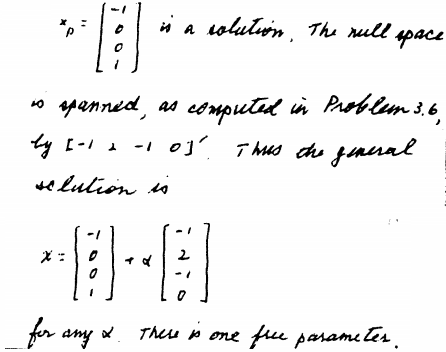 x_p = [-1 0 0 1] is a solution. The null space
is spanned, as computed in Problem 3.6,
by [-1 2 -1 0]'. Thus the general
solution is
x = [-1 0 0 1] + α [-1 2 -1 0]
for any α. There is one free parameter.